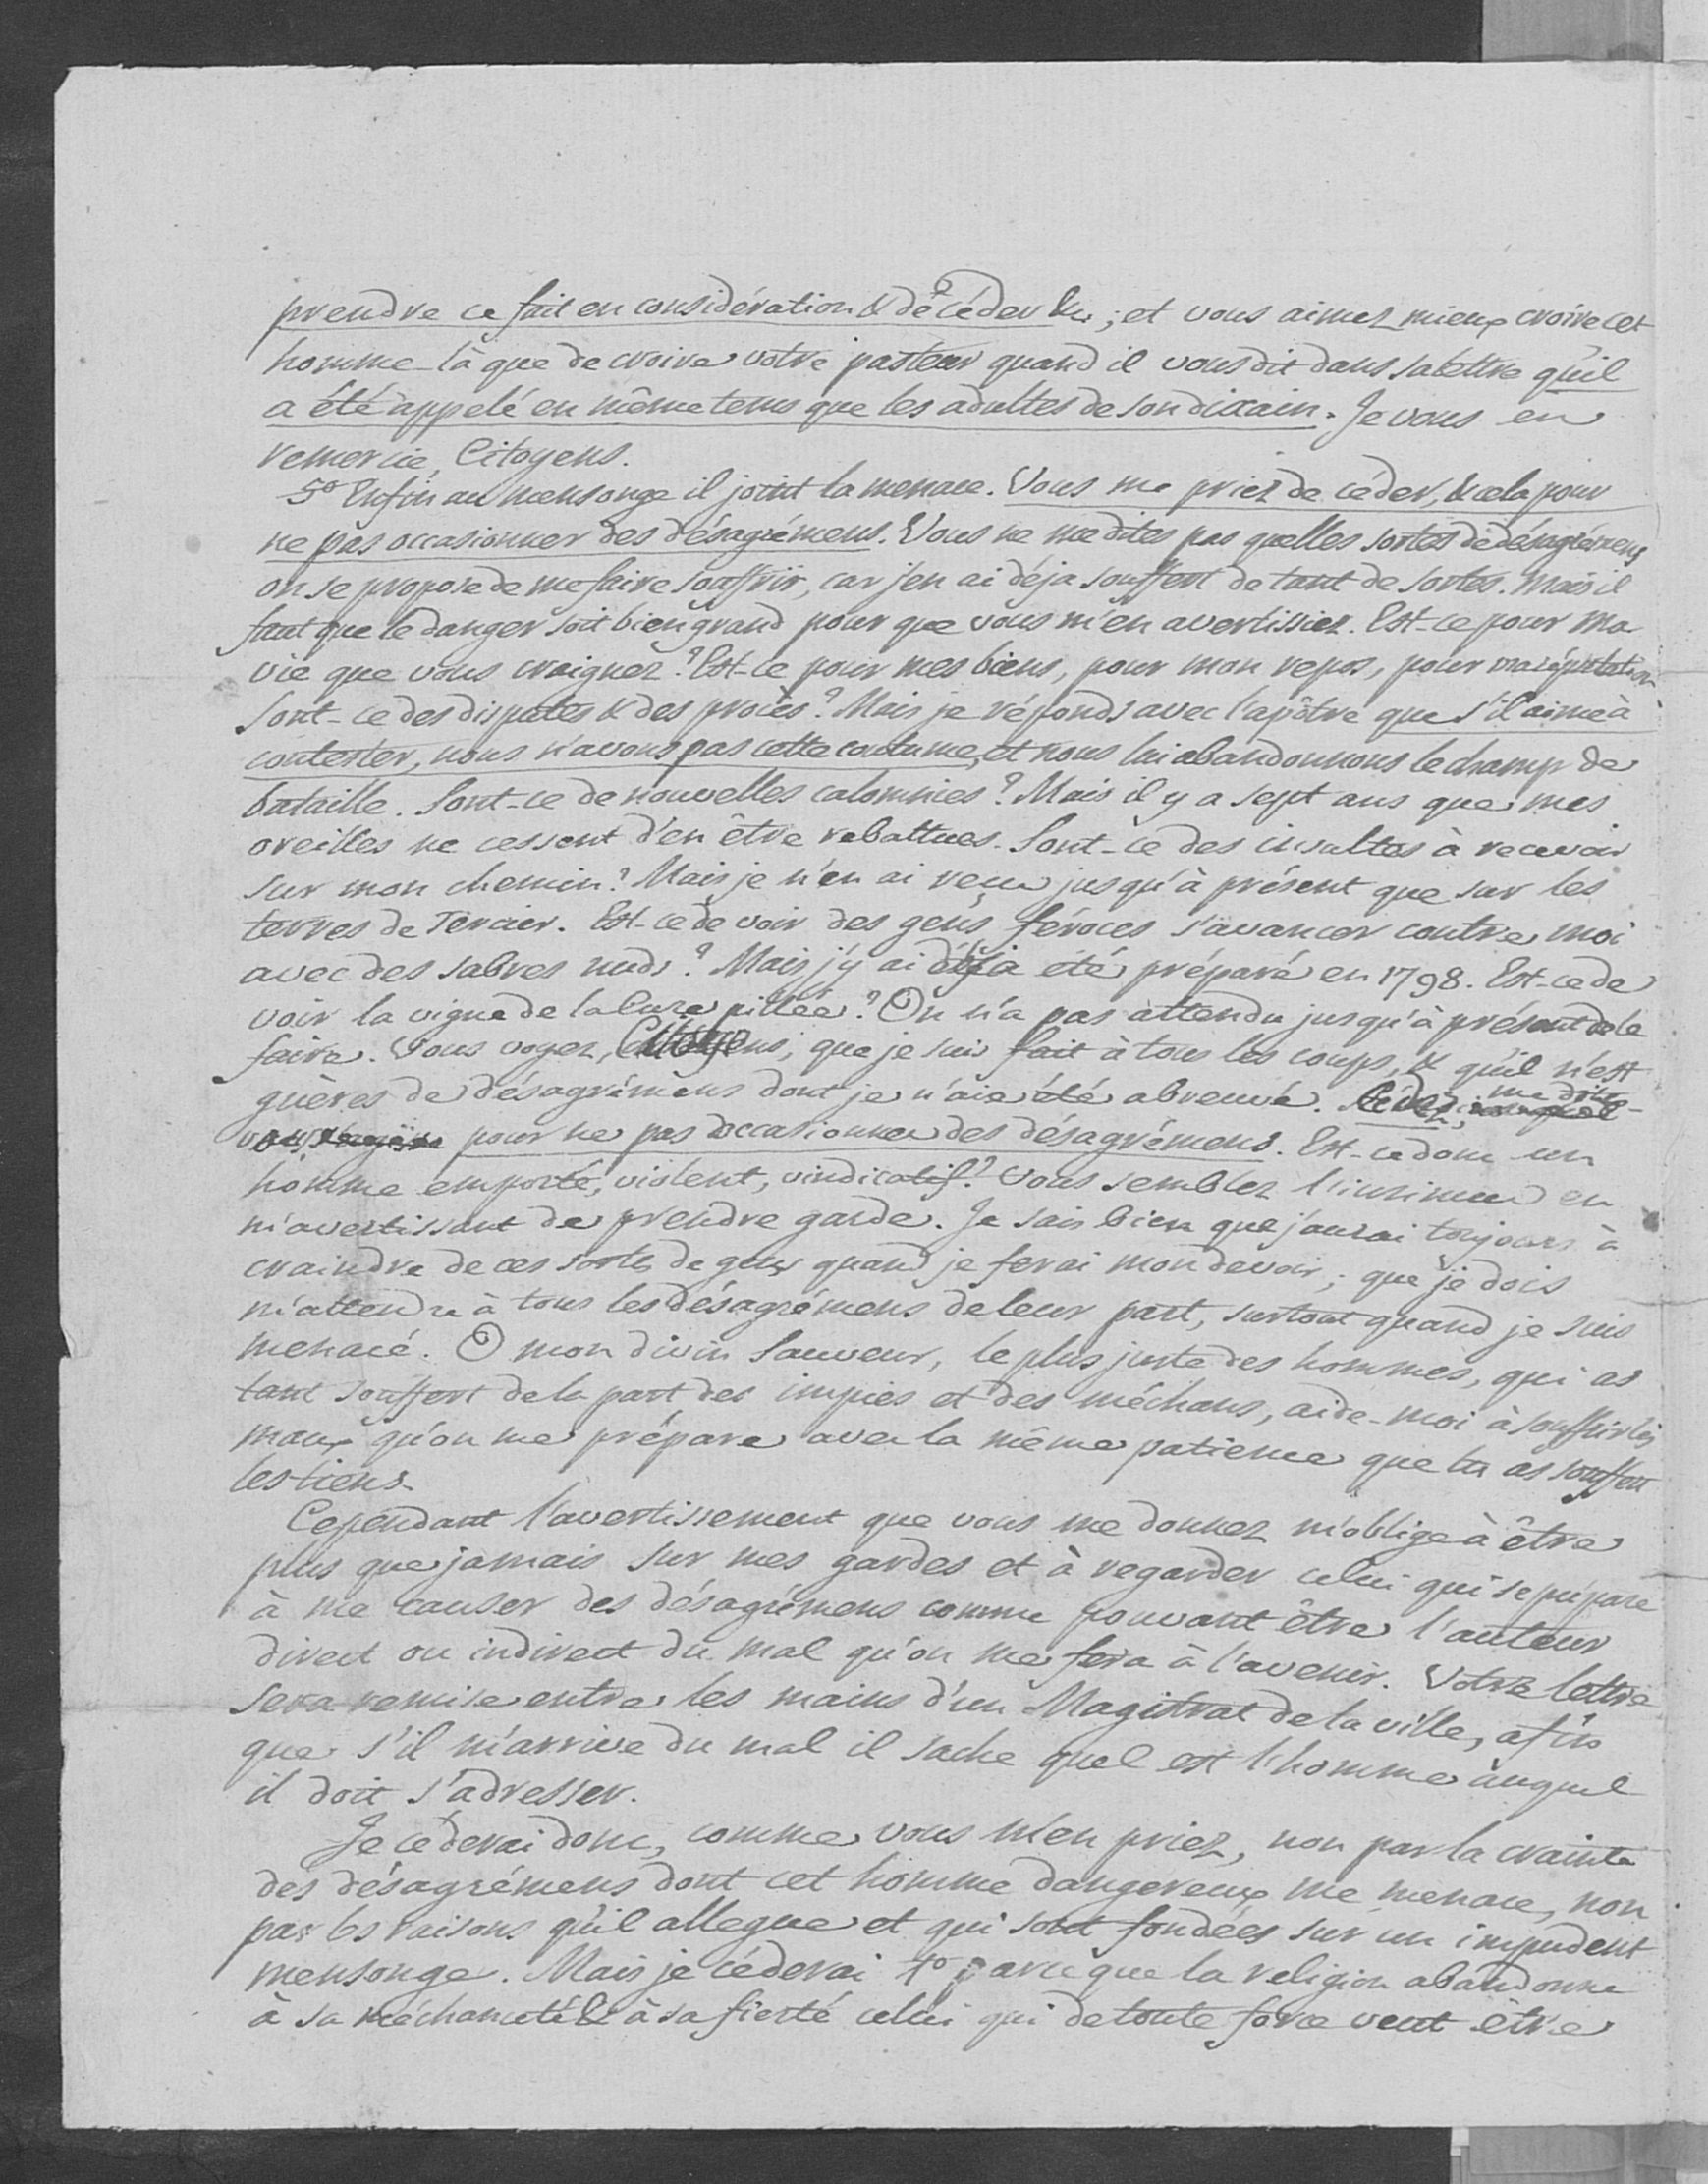 prendre ce fait en considération & de céder &c; et vous aimez mieux croire cet
homme-là que de croire votre pasteur quand il vous dit dans sa lettre qu'il
a été appelé en même tems que les adultes de son dixain. Je vous en
remercie, Citoyens.
5º Enfin au mensonge il joint la menace. Vous me priez de céder, & cela pour
ne pas occasionner des désagrémens. Vous ne me dites pas quelles sortes de désagrémens
on se propose de me faire souffrir, car j'en ai déja souffert de tant de sortes. Mais il
faut que le danger soit bien grand pour que vous m'en avertissiez. Est-ce pour ma
vie que vous craignez? Est-ce pour mes biens, pour mon repos, pour ma réputation
Sont-ce des disputes & des procès? Mais je réponds avec l'apôtre que s'il aime à
contester, nous n'avons pas cette coutume, et nous lui abandonnons le champ de
bataille. Sont-ce de nouvelles calomnies? Mais il y a sept ans que mes
oreilles ne cessent d'en être rebattues. Sont-ce des insultes à recevoir
sur mon chemin? Mais je n'en ai reçu jusqu'à présent que sur les
terres de Tercier. Est-ce de voir des gens féroces s'avancer contre moi
avec des sabres nuds? Mais j'y ai déja été préparé en 1798. Est-ce de
voir la vigne de la Cure pillée? On n'a pas attendu jusqu'à présent de le
faire. Vous voyez, Citoyens, que je suis fait à tous les coups, & qu'il n'est
guères de désagrémens dont je n'aie été abreuvé. Cédez, me dites-
vous pour ne pas occasionner des désagrémens. Est-ce donc un
homme emporté, violent, vindicatif? Vous semblez l'insinuer en
m'avertissant de prendre garde. Je sais bien que j'aurai toujours à
craindre de ces sortes de gens quand je ferai mon devoir; que je dois
m'attendre à tous les désagrémens de leur part, surtout quand je suis
menacé. O mon divin Sauveur, le plus juste des hommes, qui as
tant souffert de la part des impies et des méchans, aide-moi à souffrir les
maux qu'on me prépare avec la même patience que tu as souffert
les tiens.
Cependant l'avertissement que vous me donnez m'oblige à être
plus que jamais sur mes gardes et à regarder celui qui se prépare
à me causer des désagrémens comme pouvant être l'auteur
direct ou indirect du mal qu'on me fera à l'avenir. Votre lettre
sera remise entre les mains d'un Magistrat de la ville, afin
que s'il m'arrive du mal il sache quel est l'homme auquel
il doit s'adresser.
Je céderai donc, comme vous m'en priez, non par la crainte
des désagrémens dont cet homme dangereux me menace, non
par les raisons qu'il allegue et qui sont fondées sur un impudent
mensonge. Mais je céderai 1º parce que la religion abandonne
à sa méchanceté & à sa fierté celui qui de toute force veut être